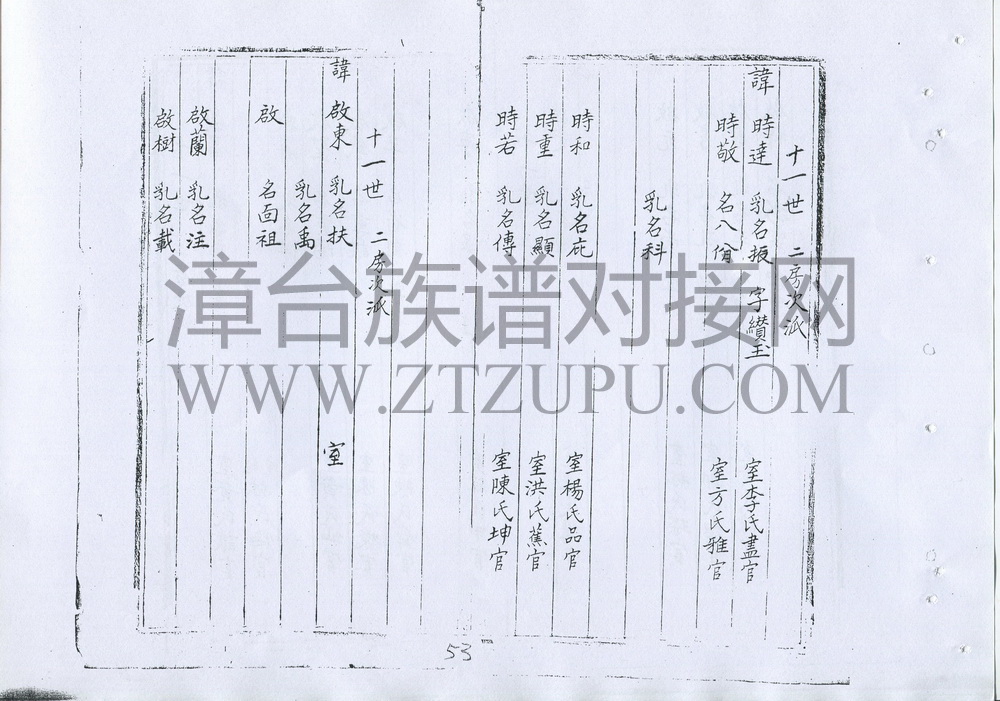 十一世 二房次派
諱 時達 乳名振 字纘玉 室李氏盡官
時敬 名八佾 室方氏雅官
乳名科
時和 乳名庇 室楊氏品官
時重 乳名顯 室洪氏蕉官
時若 乳名傳 室陳氏坤官
十一世 二房次派
諱 啟東 乳名扶 室
乳名禹
啟 名面祖
啟蘭 乳名注
啟樹 乳名載
53
漳台族谱对接网
WWW.ZTZUPU.COM